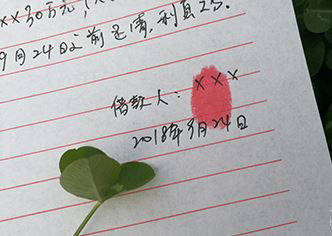 xx30万元,
9月24日之前还清,利息2分.
借款人: xxx
2018年3月24日